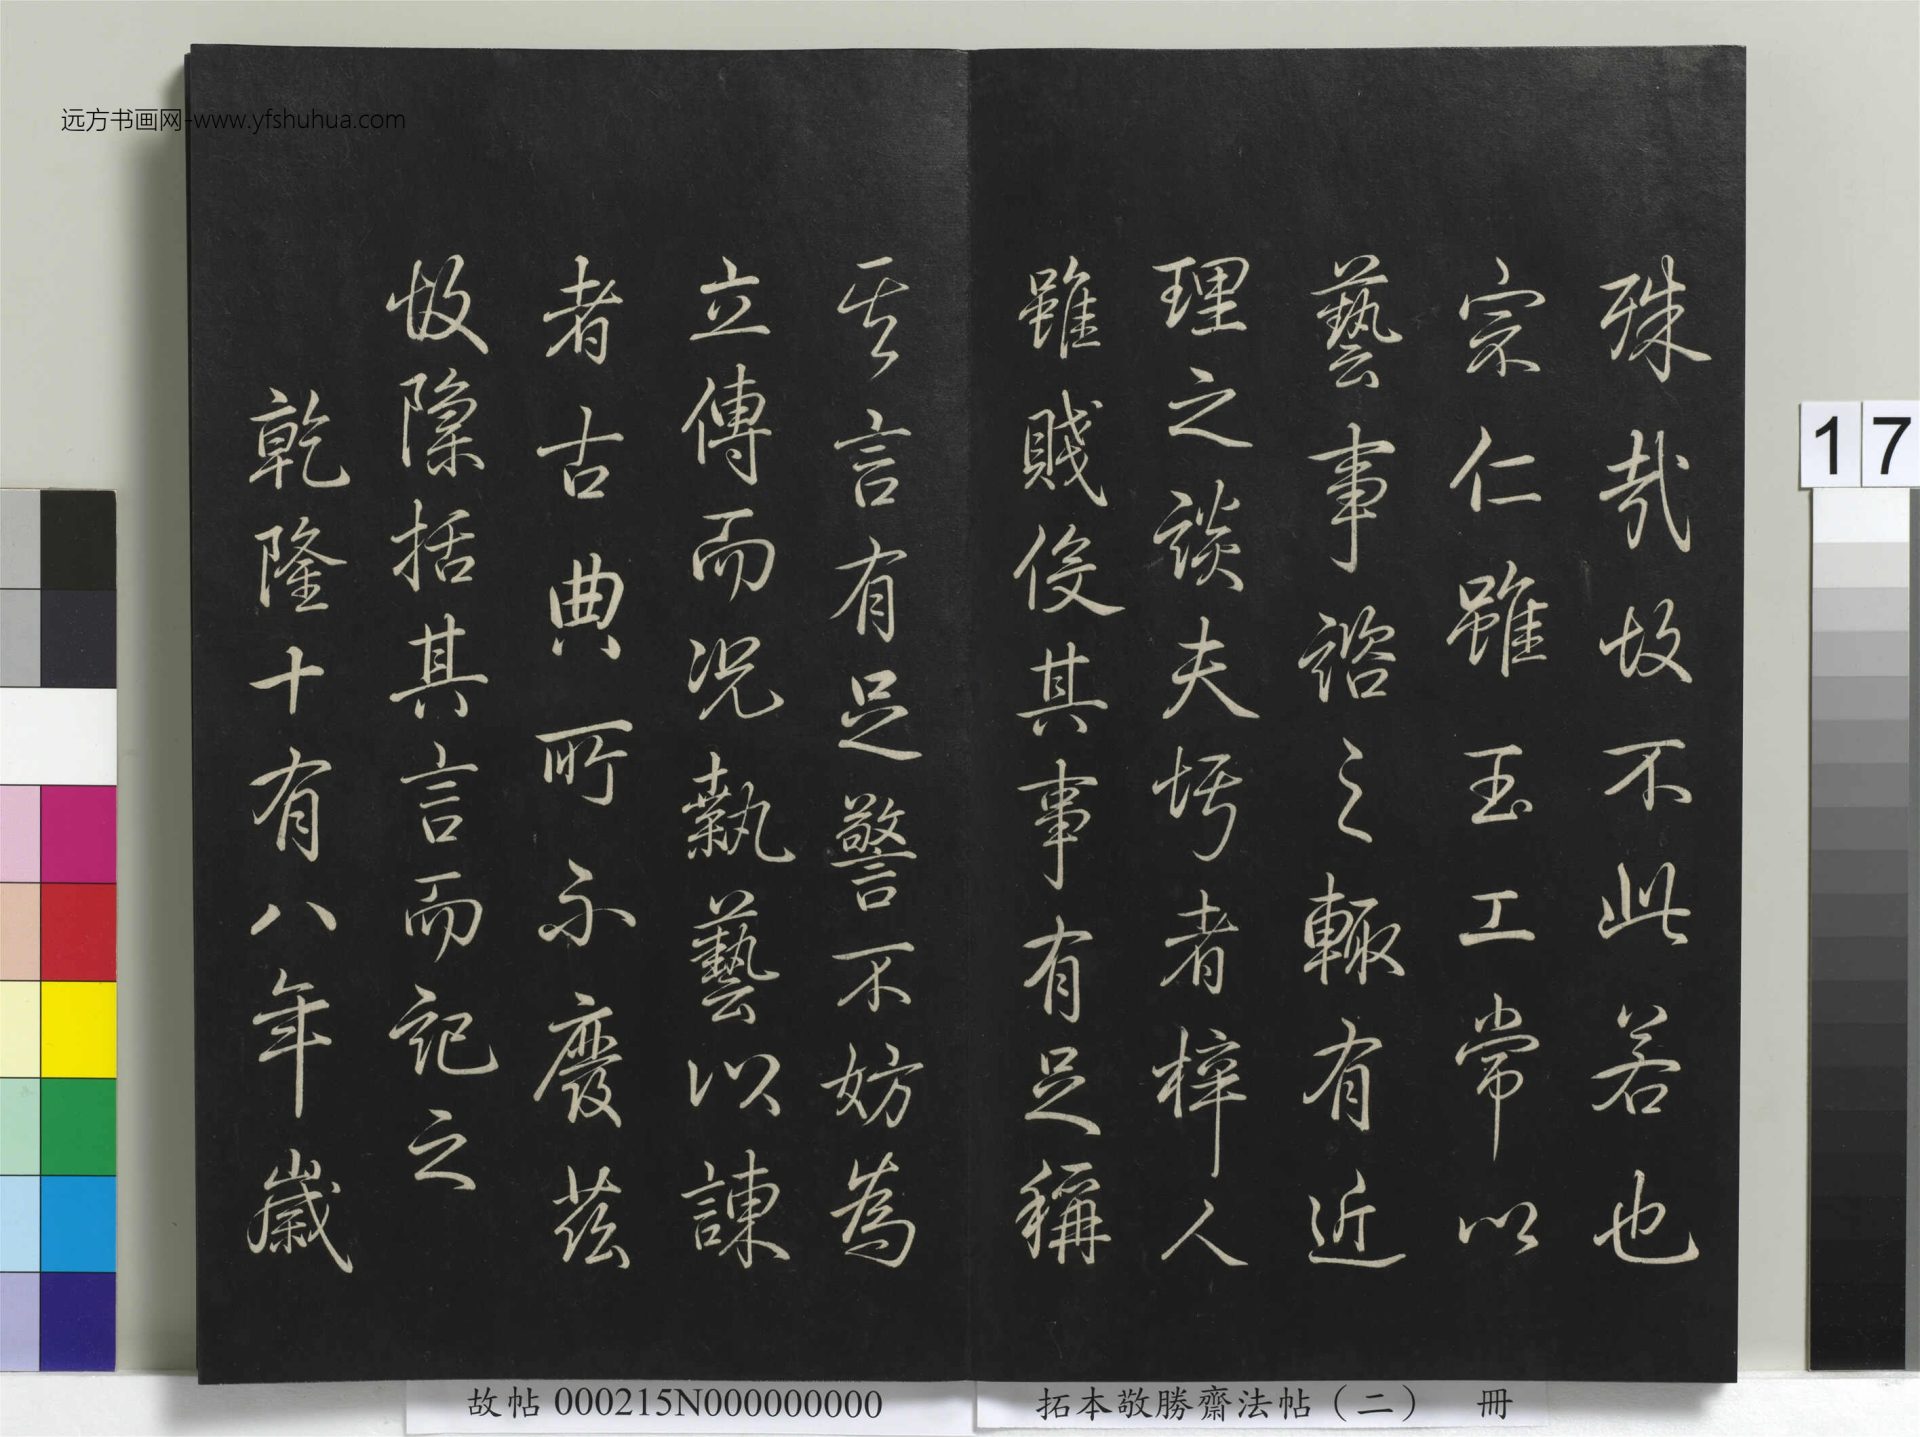 殊哉故不此若也
宗仁雖玉工常以
藝事諮之輒有近
理之談夫圬者梓人
雖賤伎其事有足稱
其言有足警不妨為
立傳而況執藝以諫
者古典所不廢茲
故隱括其言而記之
乾隆十有八年歲
远方书画网-www.yfshuhua.com
17
故帖 000215N000000000
拓本敬勝齋法帖（二） 冊